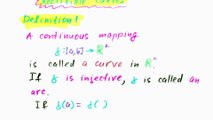 Definition 1
A continuous mapping
γ:[a,b] → ℝ²
is called a curve in ℝ².
If γ is injective, γ is called an
arc.
If γ(a) = γ( )